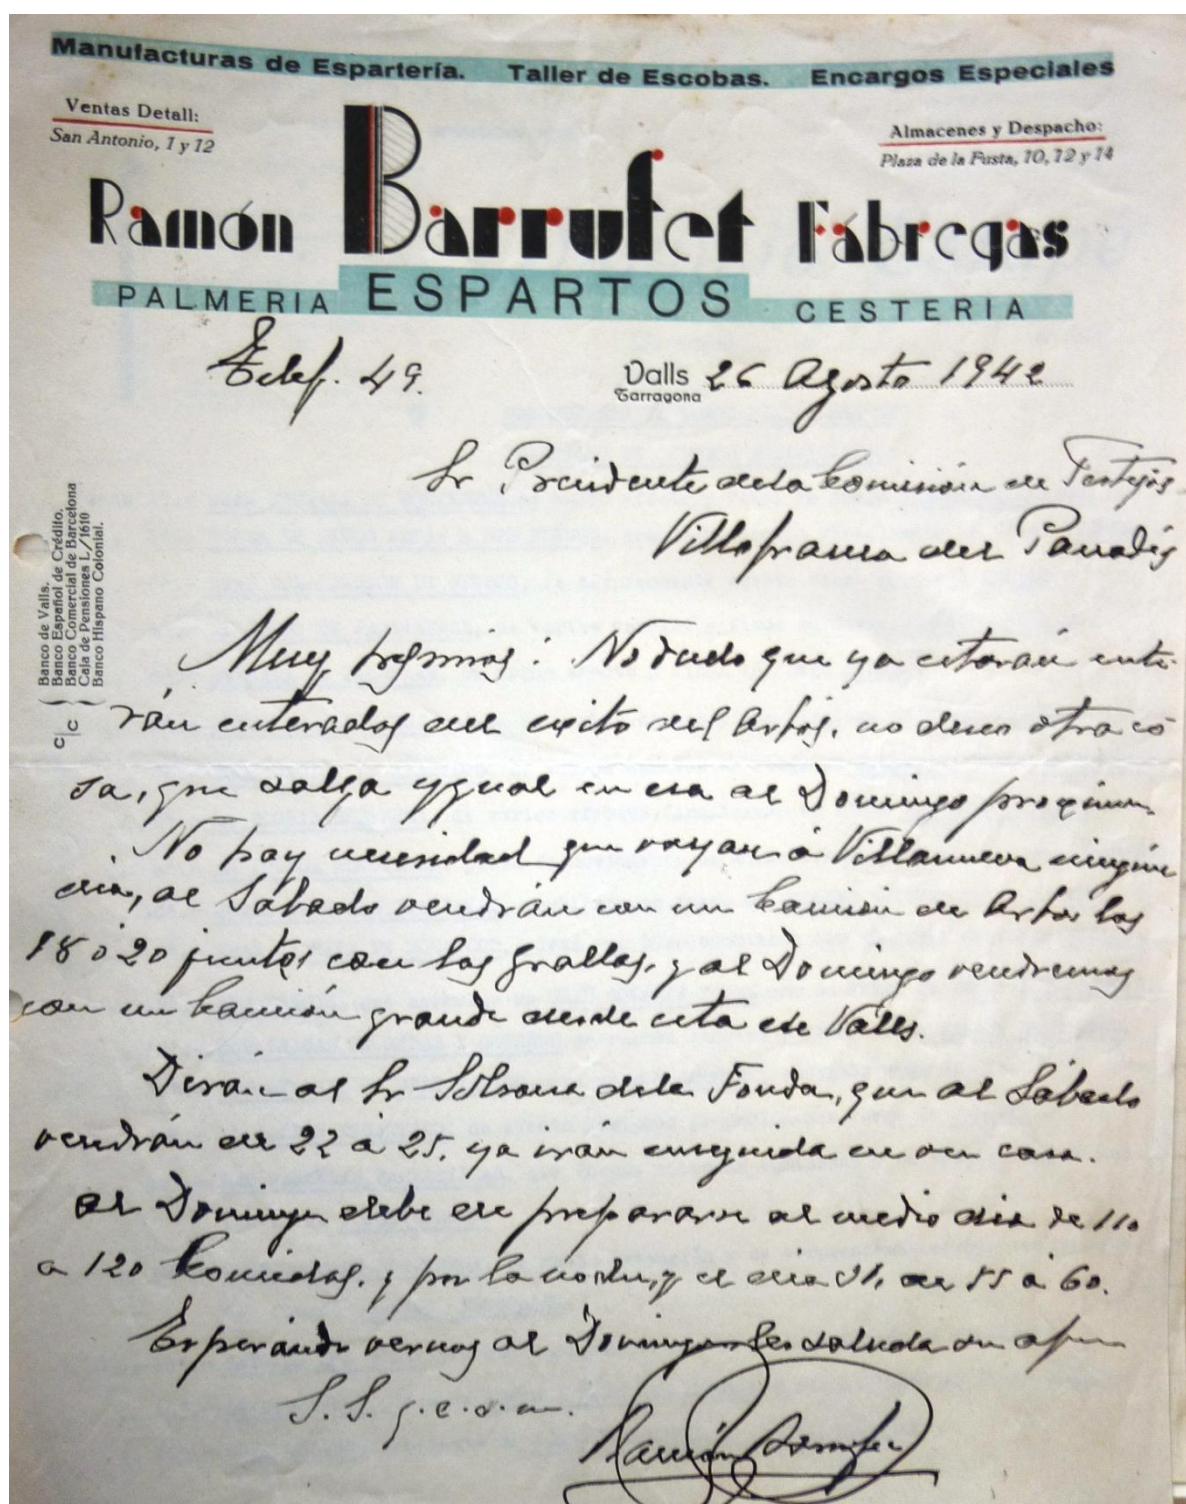 Manufacturas de Espartería. Taller de Escobas. Encargos Especiales
Ventas Detall:
San Antonio, 1 y 12
Almacenes y Despacho:
Plaza de la Fusta, 10, 12 y 14
Ramón Barrufet Fábregas
PALMERIA ESPARTOS CESTERIA
Telef. 49.
Valls 26 Agosto 1942
Tarragona
Sr Presidente dela Comisión de Festejos
Villafranca del Panadés
c/c
Banco de Valls.
Banco Español de Crédito.
Banco Comercial de Barcelona
Caja de Pensiones L/1610
Banco Hispano Colonial.
Muy : No dudo que ya estarán ente-
rán enterados del exito del Arbós, no deseo otra co
sa, que salga ygual en esa al Domingo proximo
No hay necesidad que vayan á Villanueva ningún
dia, al Sábado vendrán con un Camión de Arbos los
18 ó 20 juntos con los grallas, y al Domingo vendremos
con un Camión grande desde esta de Valls.
Dirán al Sr Solsona dela Fonda, que al Sábado
vendrán de 22 á 25, ya irán enseguida en su casa.
al Domingo debe de prepararse al medio dia de 110
a 120 Comidas, y por la noche, y el dia 31, de 55 á 60.
Esperando vernos al Domingo les saluda su afmo
S. S. q. e. s. m.
Ramón Barrufet